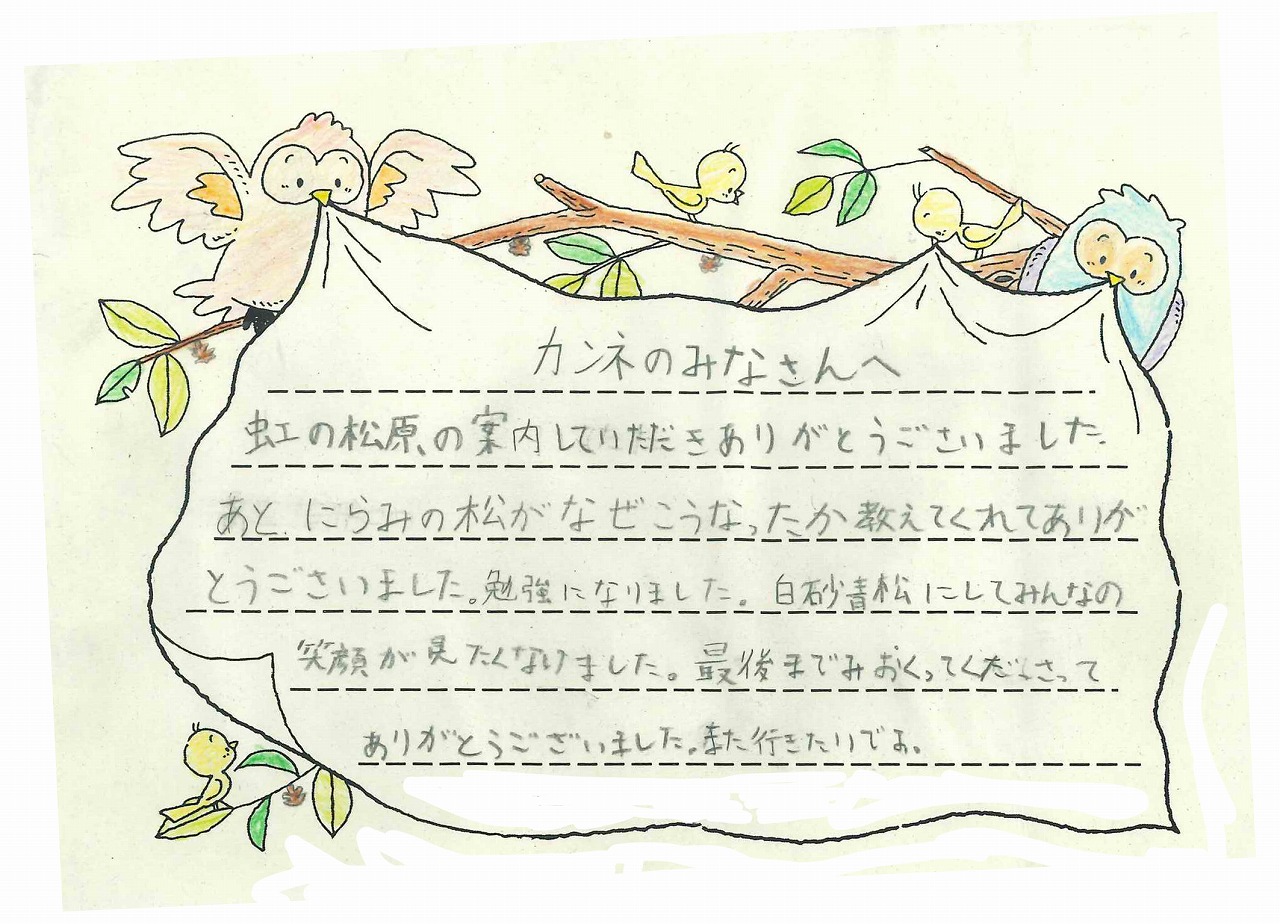 カンネのみなさんへ
虹の松原、の案内していただきありがとうごさいました。
あと、にらみの松がなぜこうなったか教えてくれてありが
とうごさいました。勉強になりました。白砂青松にしてみんなの
笑顔が見たくなけました。最後までみおくってくださって
ありがとうございました。また行きたいでよ。